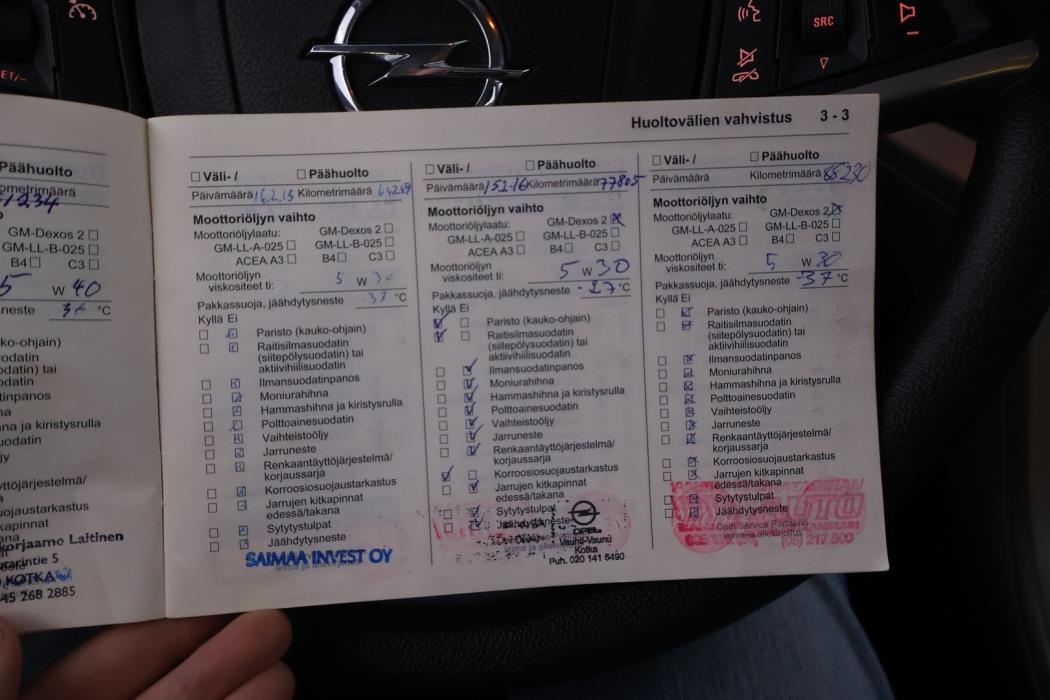 SRC
Huoltovälien vahvistus 3 - 3
Päähuolto
GM-Dexos 2
GM-LL-B-025
B4 C3
5 W 40
36 °C
korjaamo Laitinen
KOTKA
45 268 2885
Väli- / Päähuolto
Päivämäärä 16.2.15 Kilometrimäärä
Moottoriöljyn vaihto
Moottoriöljylaatu: GM-Dexos 2
GM-LL-A-025 GM-LL-B-025
ACEA A3 B4 C3
Moottoriöljyn
viskositeet ti: 5 W 30
Pakkassuoja, jäähdytysneste -37 °C
Kyllä Ei
Paristo (kauko-ohjain)
Raitisilmasuodatin
(siitepölysuodatin) tai
aktiivihiilisuodatin
Ilmansuodatinpanos
Moniurahihna
Hammashihna ja kiristysrulla
Polttoainesuodatin
Vaihteistoöljy
Jarruneste
Renkaantäyttöjärjestelmä/
korjaussarja
Korroosiosuojaustarkastus
Jarrujen kitkapinnat
edessä/takana
Sytytystulpat
Jäähdytysneste
SAIMAA INVEST OY
leima ja allekirjoitus
Väli- / Päähuolto
Päivämäärä Kilometrimäärä 77805
Moottoriöljyn vaihto
Moottoriöljylaatu: GM-Dexos 2
GM-LL-A-025 GM-LL-B-025
ACEA A3 B4 C3
Moottoriöljyn
viskositeet ti: 5 W 30
Pakkassuoja, jäähdytysneste -27 °C
Kyllä Ei
Paristo (kauko-ohjain)
Raitisilmasuodatin
(siitepölysuodatin) tai
aktiivihiilisuodatin
Ilmansuodatinpanos
Moniurahihna
Hammashihna ja kiristysrulla
Polttoainesuodatin
Vaihteistoöljy
Jarruneste
Renkaantäyttöjärjestelmä/
korjaussarja
Korroosiosuojaustarkastus
Jarrujen kitkapinnat
edessä/takana
Sytytystulpat
Jäähdytysneste
OPEL
Vauhti-Vaunu
Kotka
Puh. 020 141 5490
Väli- / Päähuolto
Päivämäärä Kilometrimäärä
Moottoriöljyn vaihto
Moottoriöljylaatu: GM-Dexos 2
GM-LL-A-025 GM-LL-B-025
ACEA A3 B4 C3
Moottoriöljyn
viskositeet ti: 5 W 30
Pakkassuoja, jäähdytysneste -37 °C
Kyllä Ei
Paristo (kauko-ohjain)
Raitisilmasuodatin
(siitepölysuodatin) tai
aktiivihiilisuodatin
Ilmansuodatinpanos
Moniurahihna
Hammashihna ja kiristysrulla
Polttoainesuodatin
Vaihteistoöljy
Jarruneste
Renkaantäyttöjärjestelmä/
korjaussarja
Korroosiosuojaustarkastus
Jarrujen kitkapinnat
edessä/takana
Sytytystulpat
Jäähdytysneste
Opel Service Partnerin
leima ja allekirjoitus
217 800